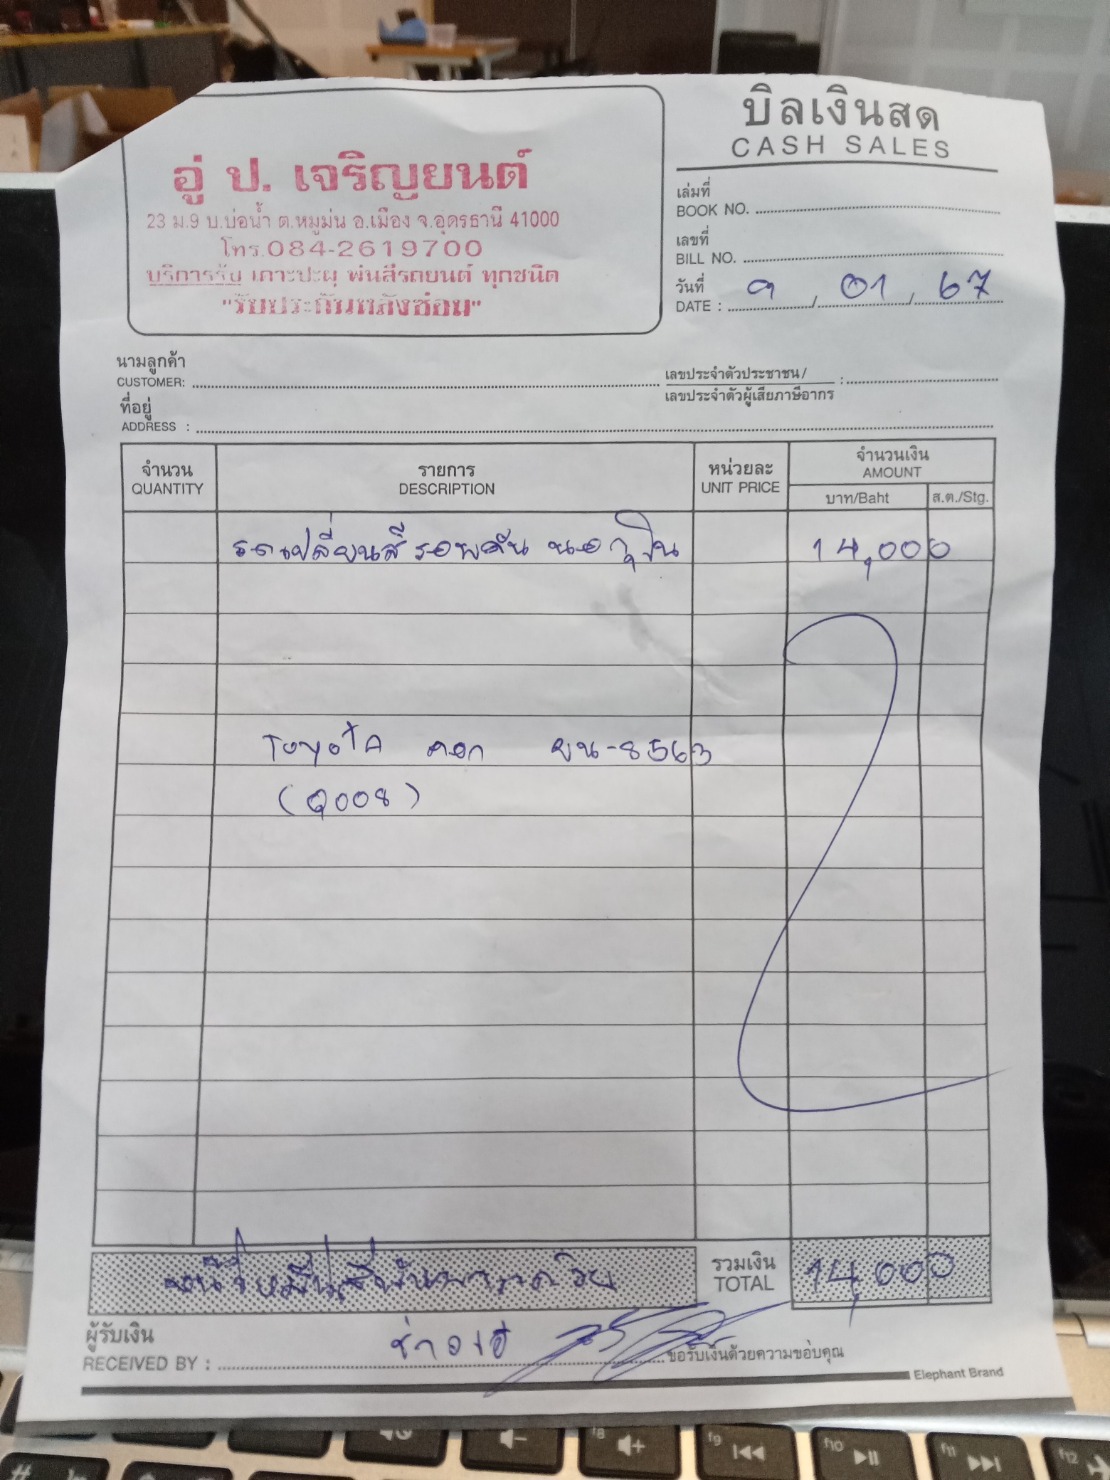 บิลเงินสด
CASH SALES
อู่ ป. เจริญยนต์
23 ม.9 บ.บ่อน้ำ ต.หมูม่น อ.เมือง จ.อุดรธานี 41000
โทร.084-2619700
บริการรับ เคาะปะผุ พ่นสีรถยนต์ ทุกชนิด
"รับประกันหลังซ่อม"
เล่มที่
BOOK NO.
เลขที่
BILL NO.
วันที่
DATE : 9 , 01 , 67
นามลูกค้า
CUSTOMER:
เลขประจำตัวประชาชน/
เลขประจำตัวผู้เสียภาษีอากร :
ที่อยู่
ADDRESS :
จำนวน รายการ หน่วยละ จำนวนเงิน
QUANTITY DESCRIPTION UNIT PRICE AMOUNT
บาท/Baht ส.ต./Stg.
รถเปลี่ยนสีรอบคัน 14,000
Toyota ขน-8563
(Q008)
หนึ่งหมื่นสี่พันบาทถ้วน รวมเงิน 14,000
TOTAL
ผู้รับเงิน
RECEIVED BY : ขอรับเงินด้วยความขอบคุณ
Elephant Brand
f8
f9
f10
f11
f12